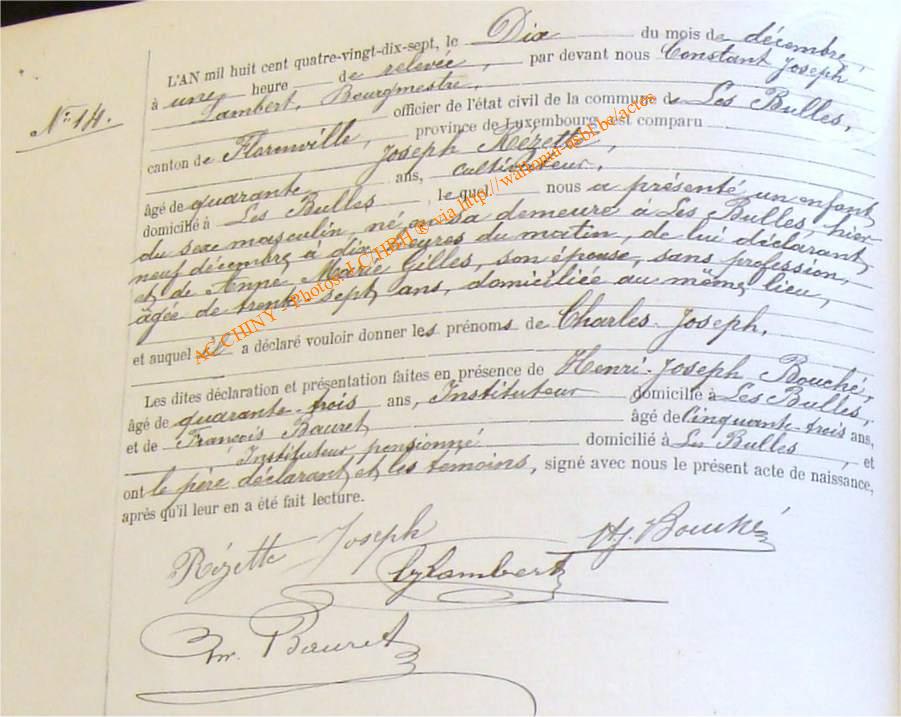 L'AN mil huit cent quatre-vingt-dix-sept, le Dix du mois de décembre,
à une heure de relevée, par devant nous Constant Joseph
Lambert, Bourgmestre,
N° 14.
officier de l'état civil de la commune de Les Bulles,
canton de Florenville, province de Luxembourg, est comparu
Joseph Rézette,
âgé de quarante ans, cultivateur,
domicilié à Les Bulles, lequel nous a présenté un enfant
du sexe masculin, né en sa demeure à Les Bulles, hier
neuf décembre à dix heures du matin, de lui déclarant
et de Anne Marie Gilles, son épouse, sans profession,
âgée de trente sept ans, domiciliée au même lieu,
et auquel il a déclaré vouloir donner les prénoms de Charles-Joseph.
Les dites déclaration et présentation faites en présence de Henri-Joseph Bouché,
âgé de quarante-trois ans, Instituteur domicilié à Les Bulles,
et de François Bauret âgé de Cinquante-trois ans,
Instituteur pensionné domicilié à Les Bulles, et
ont le père déclarant et les témoins, signé avec nous le présent acte de naissance,
après qu'il leur en a été fait lecture.
Rézette Joseph
HJ. Bouché
CJLambert
Bauret
AC CHINY - Photos LC/HBH ® via http://wallonia-asbl.be/actes